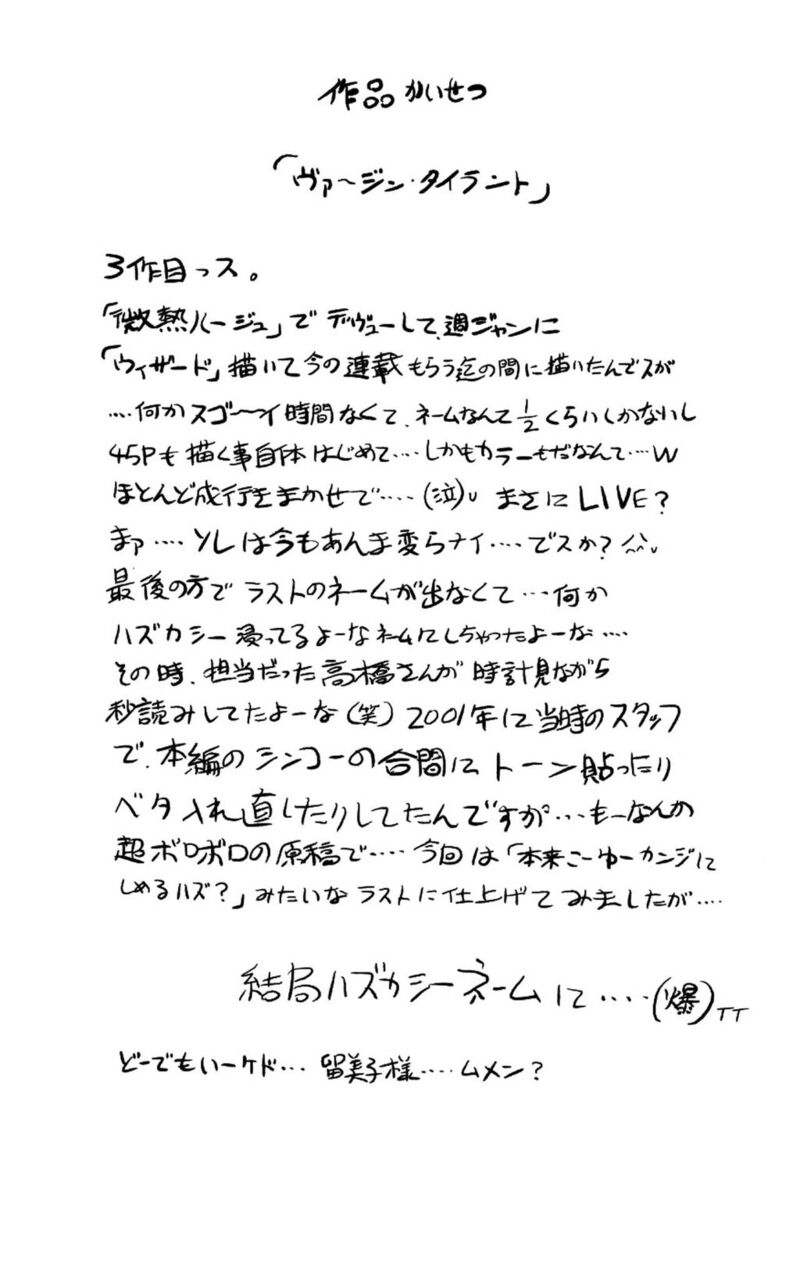 作品かいせつ
「ヴァ〜ジン・タイラント」
3作目っス。
「微熱ルージュ」でデヴューして、週ジャンに
「ウィザード」描いて今の連載もらう迄の間に描いたんでスが
‥‥何かスゴ〜イ時間なくて、ネームなんて1/2くらいしかないし
45Pも描く事自体はじめて‥‥しかもカラーもだなんて‥‥w
ほとんど成行きまかせで‥‥(泣) まさにLIVE?
まァ‥‥ソレは今もあんま変らナイ‥‥でスか?^^
最後の方でラストのネームが出なくて‥‥何か
ハズカシー浸ってるよーなネームにしちゃったよーな‥‥
その時、担当だった高橋さんが時計見ながら
秒読みしてたよーな(笑)2001年に当時のスタッフ
で、本編のシンコーの合間にトーン貼ったり
ベタ入れ直したりしてたんですが‥‥もーなんか
超ボロボロの原稿で‥‥今回は「本来こーゆーカンジに
しめるハズ?」みたいなラストに仕上げてみましたが‥‥
結局ハズカシーネームに‥‥(爆)TT
どーでもいーケド‥‥留美子様‥‥ムメン?